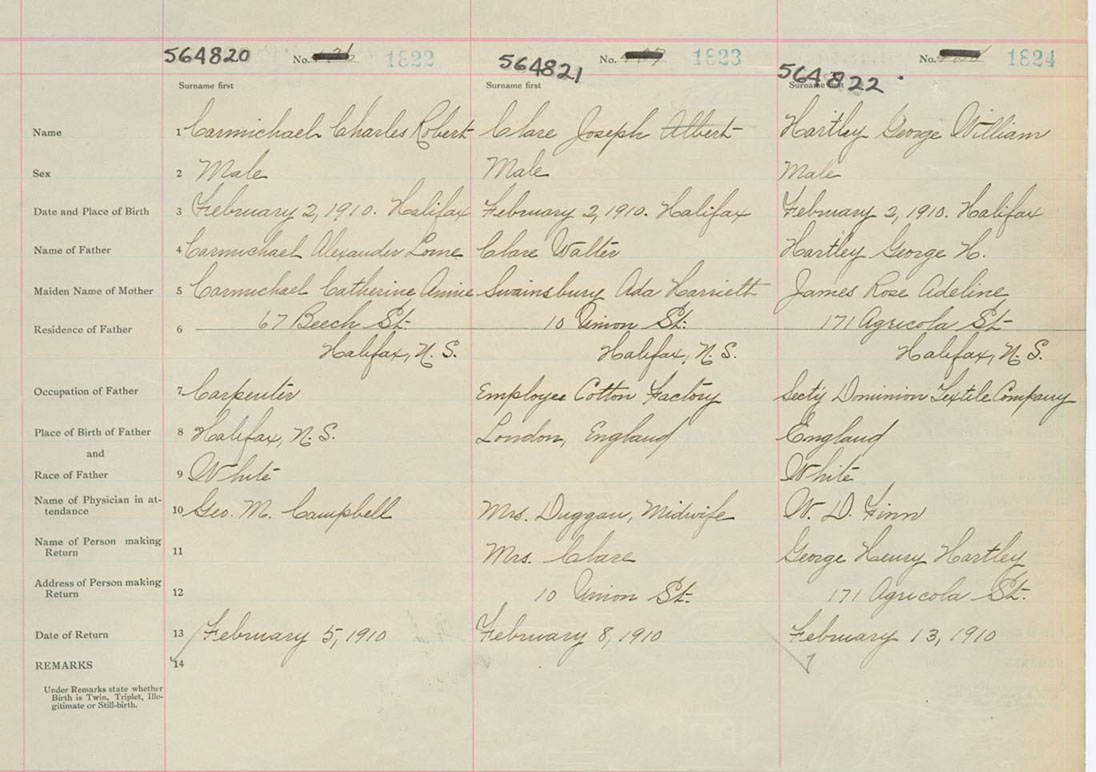 564820 No. 1822 564821 No. 1823 564822 No. 1824
Surname first Surname first Surname first
Name 1 Carmichael Charles Robert Clare Joseph Albert Hartley George William
Sex 2 Male Male Male
Date and Place of Birth 3 February 2, 1910. Halifax February 2, 1910. Halifax February 2, 1910. Halifax
Name of Father 4 Carmichael Alexander Lorne Clare Walter Hartley George H.
Maiden Name of Mother 5 Carmichael Catherine Annie Swainsbury Ada Harriett James Rose Adeline
Residence of Father 6 67 Beech St. 10 Union St. 171 Agricola St.
Halifax, N.S. Halifax, N.S. Halifax, N.S.
Occupation of Father 7 Carpenter Employee Cotton Factory Secty Dominion Textile Company
Place of Birth of Father 8 Halifax, N.S. London, England England
and
Race of Father 9 White White
Name of Physician in at-
tendance 10 Geo. M. Campbell Mrs. Duggan, Midwife W. D. Finn
Name of Person making
Return 11 Mrs. Clare George Henry Hartley
Address of Person making
Return 12 10 Union St. 171 Agricola St.
Date of Return 13 February 5, 1910 February 8, 1910 February 13, 1910
REMARKS 14
Under Remarks state whether
Birth is Twin, Triplet, Ille-
gitimate or Still-birth.